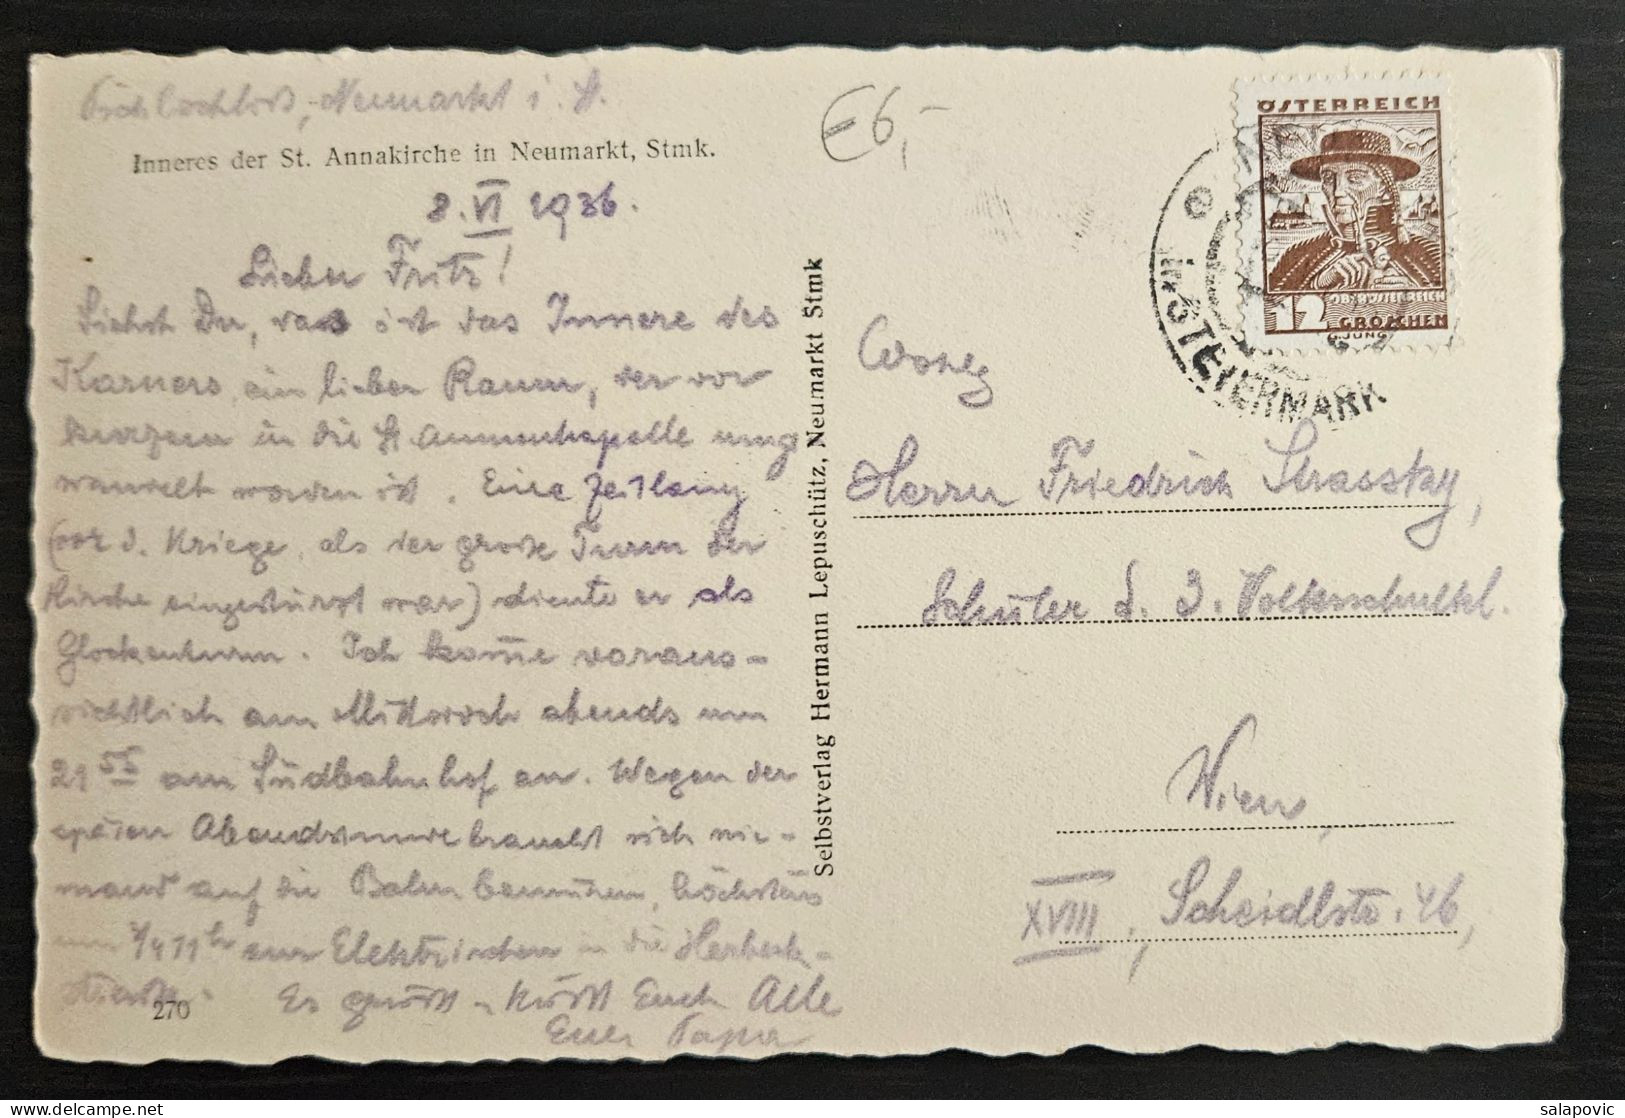 Neumarkt i. St.
Inneres der St. Annakirche in Neumarkt, Stmk.
8. VI 1936.
Lieber Fritz!
Siehst Du, das ist das Innere des
Karners, ein lieber Raum, der vor
kurzem in die St. Annenkapelle umge
wandelt worden ist. Eine Zeitlang
(vor d. Kriege, als der große Turm der
Kirche eingestürzt war) diente er als
Glockenturm. Ich kom̅e voraus-
sichtlich am Mittwoch abends um
21 55 am Südbahnhof an. Wegen der
späten Abendstunde braucht sich nie-
mand auf die Bahn bemühen, höchstens
um 1/4 11 h zur Elektrischen in die Herbeck-
straße. Es grüßt u. küßt Euch Alle
Euer Papa
270
Selbstverlag Hermann Lepuschütz, Neumarkt Stmk
€6,-
ÖSTERREICH
OBERÖSTERREICH
12 GROSCHEN
G. JUNG
STEIERMARK
Herrn Friedrich
Schüler d. 3. Volksschulkl.
Wien,
XVIII, Scheidlstr. 46,
salapovic